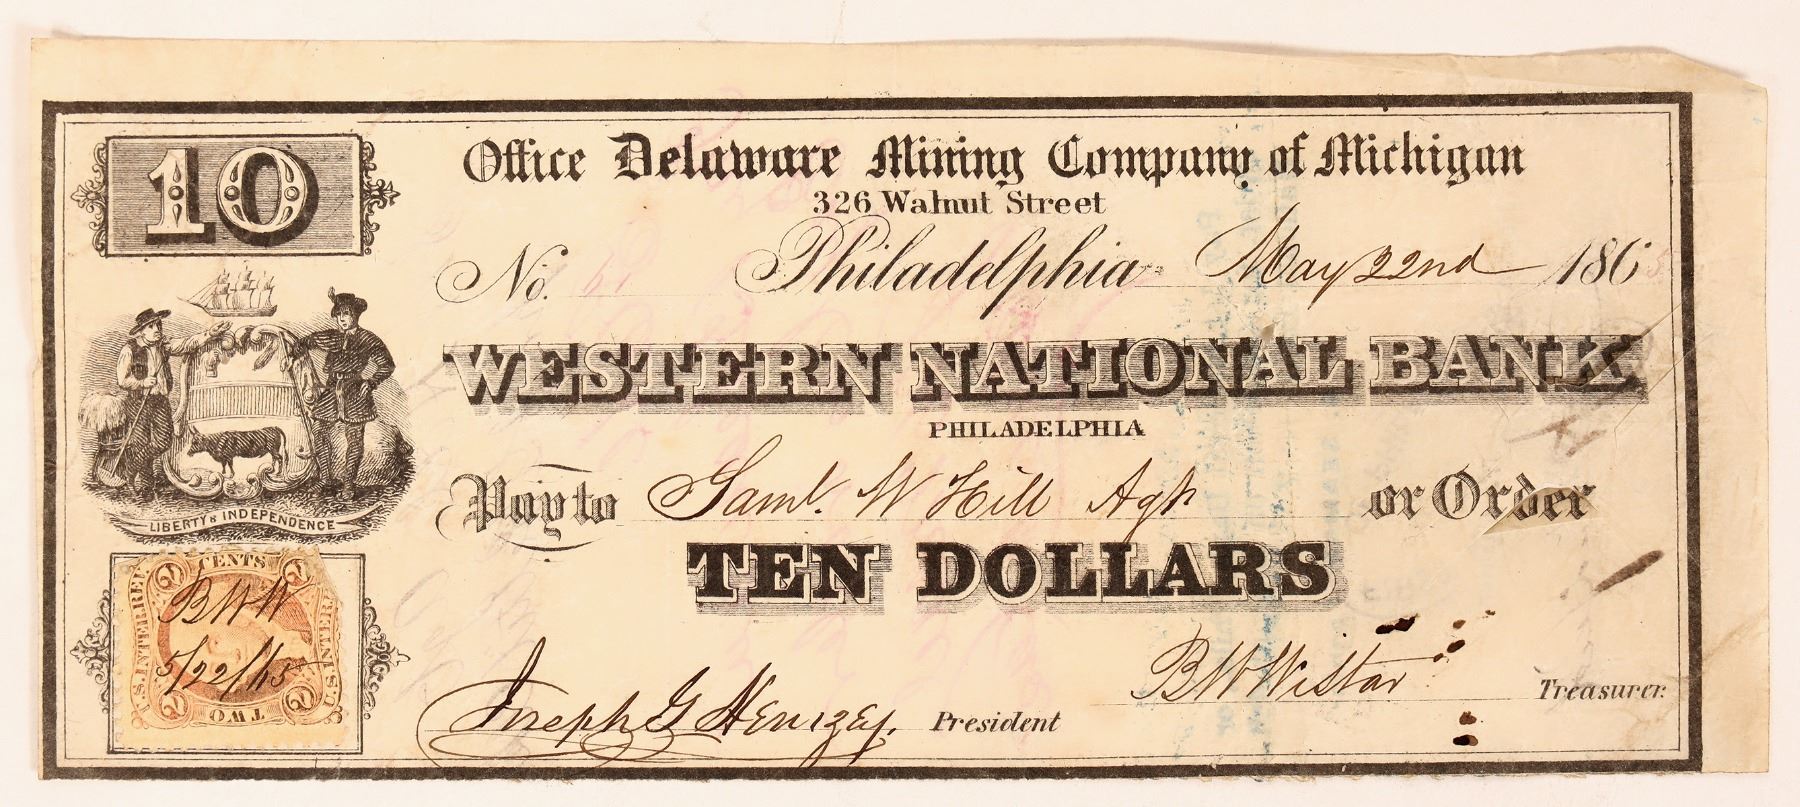 10
Office Delaware Mining Company of Michigan
326 Walnut Street
No. 61 Philadelphia May 22nd 1865
WESTERN NATIONAL BANK
PHILADELPHIA
Pay to Saml. W Hill Agt or Order
TEN DOLLARS
LIBERTY & INDEPENDENCE
2 CENTS 2
U.S. INTER. REV.
U.S. INTER.
BWW
5/22/65
2 TWO 2
BW Wistar Treasurer
Joseph G Henszey. President